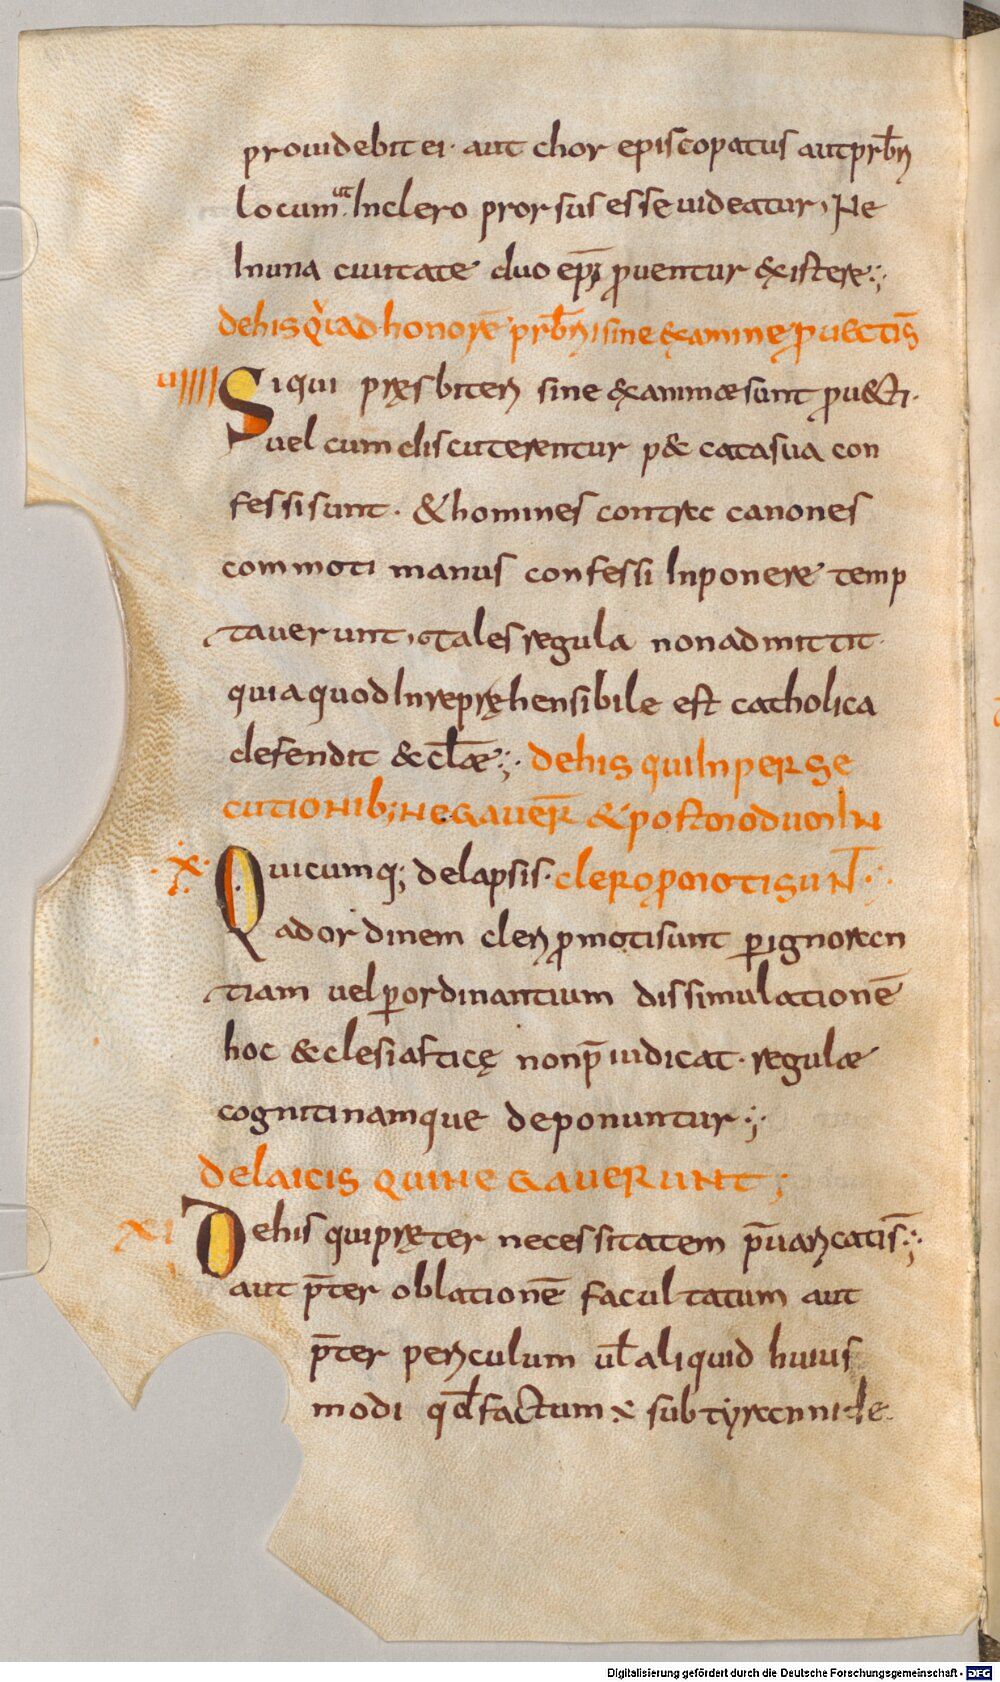 prouidebit ei· aut chor episcopatus aut prb̄ri
locum· ut Inclero prorsus esse uideatur, Ne
Inuna ciuitate duo epī prouentur &istere:;
dehis qui ad honorē prb̄rii sine examine prouectis
uiiii Siqui pręsbiteri sine examinae sunt prouecti·
uel cum discuterentur p& catasua con
fessi sunt· & homines contra canones
commoti manus confessi Inponere temp
tauerunt, tales regula non admittit·
quia quod Inrepręhensibile est catholica
defendit &cl̄ae:;· dehis qui In perse
cutionib; negauer̄ & postmodum In
·x· Quicumq; de lapsis· clero promoti sunt·:
ad ordinem cleri promoti sunt per ignoran
tiam uel per ordinantium dissimulationē
hoc &clesiasticę non p̄iudicat· regulae
cogniti namque deponuntur:;·
de laicis qui negauerunt;
xi Dehis qui pręter necessitatem p̄uaricatis̄:;·
aut p̄ter oblationē facultatum aut
p̄ter periculum ul̄ aliquid huius
modi qd̄ factum ÷ sub tyrannide·
Digitalisierung gefördert durch die Deutsche Forschungsgemeinschaft - DFG